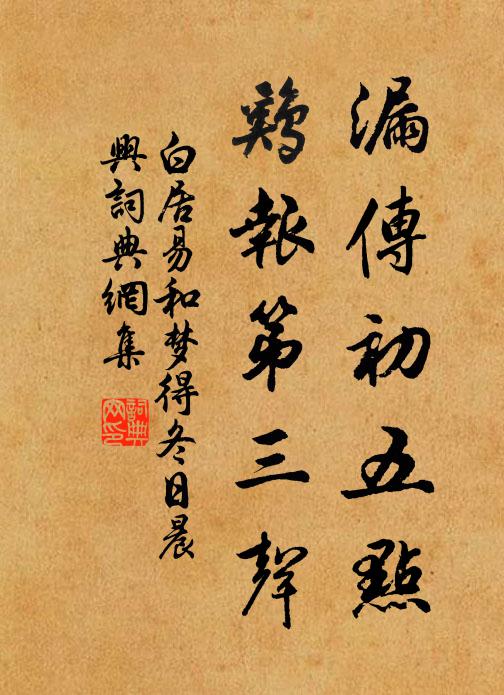 漏傳初五點
鷄報第三聲
白居易和梦得冬日晨
興詞典網集
詞典網印